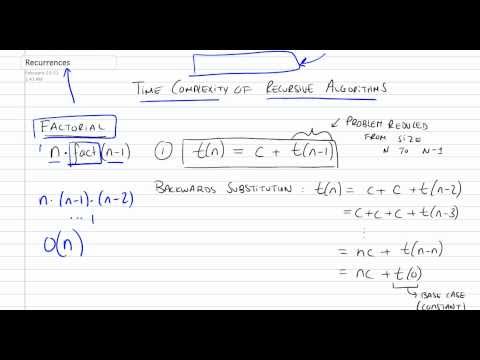 Recurrences
TIME COMPLEXITY OF RECURSIVE ALGORITHMS
FACTORIAL
n · fact(n-1)
① t(n) = c + t(n-1)
PROBLEM REDUCED
FROM SIZE
N TO N-1
n·(n-1)·(n-2)
... 1
O(n)
BACKWARDS SUBSTITUTION : t(n) = c + c + t(n-2)
= c + c + c + t(n-3)
⋮
= nc + t(n-n)
= nc + t(0)
BASE CASE
(CONSTANT)